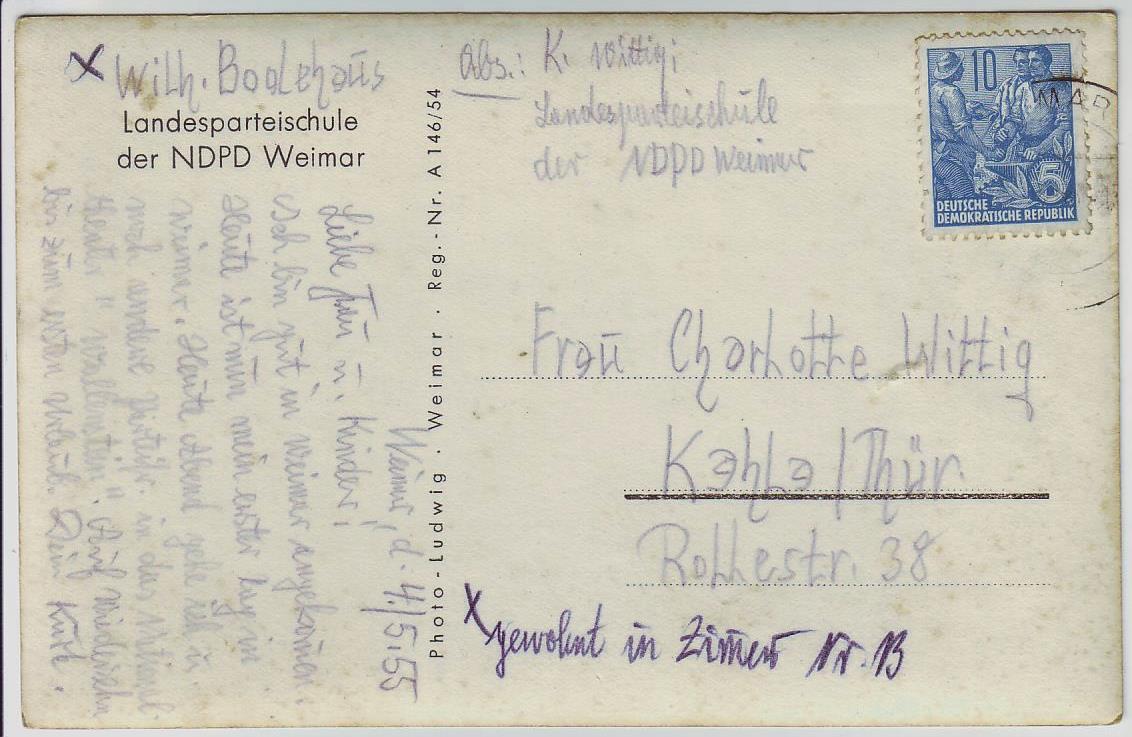 x Wilh. Bodehaus
Landesparteischule
der NDPD Weimar
Abs.: K. Wittig;
Landesparteischule
der NDPD Weimar
10
5
DEUTSCHE
DEMOKRATISCHE REPUBLIK
MAR
Photo-Ludwig . Weimar . Reg.-Nr. A 146/54
Weimar, d. 4./5.55
Liebe Frau u. Kinder!
Ich bin gut in Weimar angekommen.
Heute ist nun mein erster Tag in
Weimar. Heute Abend gehe ich u.
noch andere in das
theater "wallenstein" Auf wiedersehn
bis zum ersten Urlaub. Dein Kurt.
Frau Charlotte Wittig
Kahla/Thür.
Rollestr. 38
x gewohnt in Zimmer Nr. 13